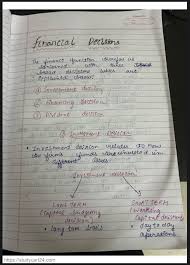 financial Decisions
The finance function
concerned with three
broad decisions which are
explained below:
① Investment decision
② Financing decision
③ Dividend decision
① Investment Decision
• Investment decision relates to how
the firm's funds are invested in
different assets.
Investment decision
Long term
(Capital budgeting
decision)
• long term
Short term
(working
Capital decision)
• day to day
operations
https://studycart24.com